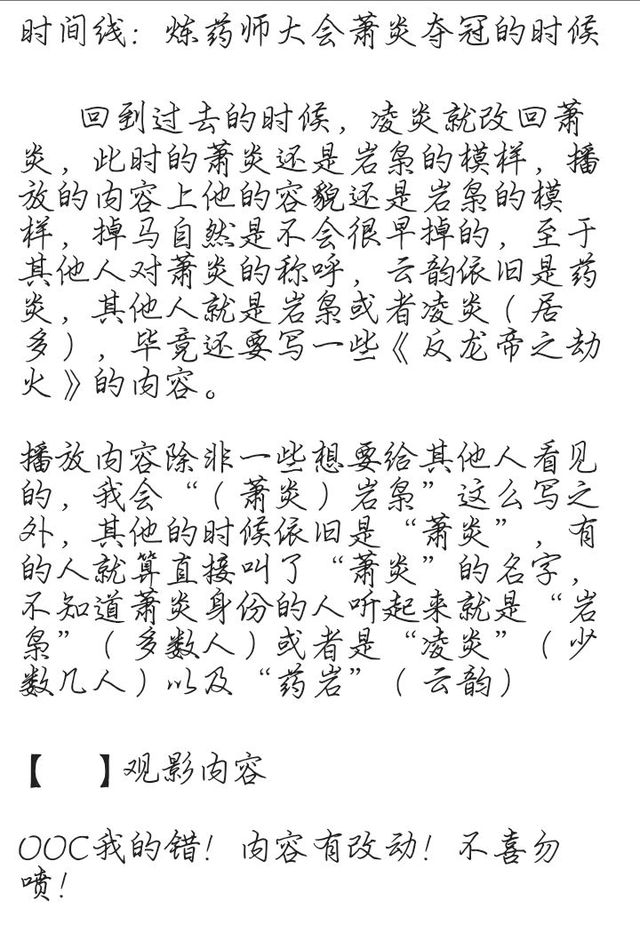 时间线：炼药师大会萧炎夺冠的时候
回到过去的时候，凌炎就改回萧
炎，此时的萧炎还是岩枭的模样，播
放的内容上他的容貌还是岩枭的模
样，掉马自然是不会很早掉的，至于
其他人对萧炎的称呼，云韵依旧是药
炎，其他人就是岩枭或者凌炎（居
多），毕竟还要写一些《反龙帝之劫
火》的内容。
播放内容除非一些想要给其他人看见
的，我会“（萧炎）岩枭”这么写之
外，其他的时候依旧是“萧炎”，有
的人就算直接叫了“萧炎”的名字，
不知道萧炎身份的人听起来就是“岩
枭”（多数人）或者是“凌炎”（少
数几人）以及“药岩”（云韵）
【 】观影内容
OOC我的错！内容有改动！不喜勿
喷！